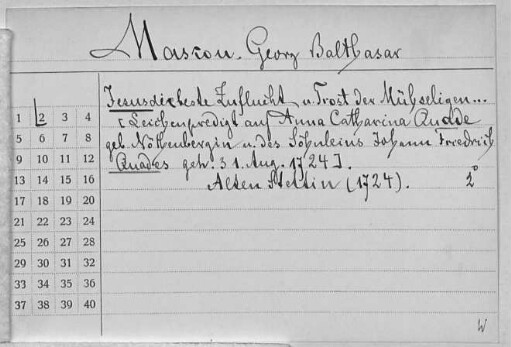 Mascou. Georg Balthasar
Jesus die beste Zuflucht u. Trost der Mühseligen...
[Leichenpredigt auf Anna Catharina Quade
geb. Nöthenbergin u. des Söhnleins Johann Friedrich
Quades geh. 31. Aug. 1724].
Alten Stettin (1724). 2°
1 2 3 4
5 6 7 8
9 10 11 12
13 14 15 16
17 18 19 20
21 22 23 24
25 26 27 28
29 30 31 32
33 34 35 36
37 38 39 40
W